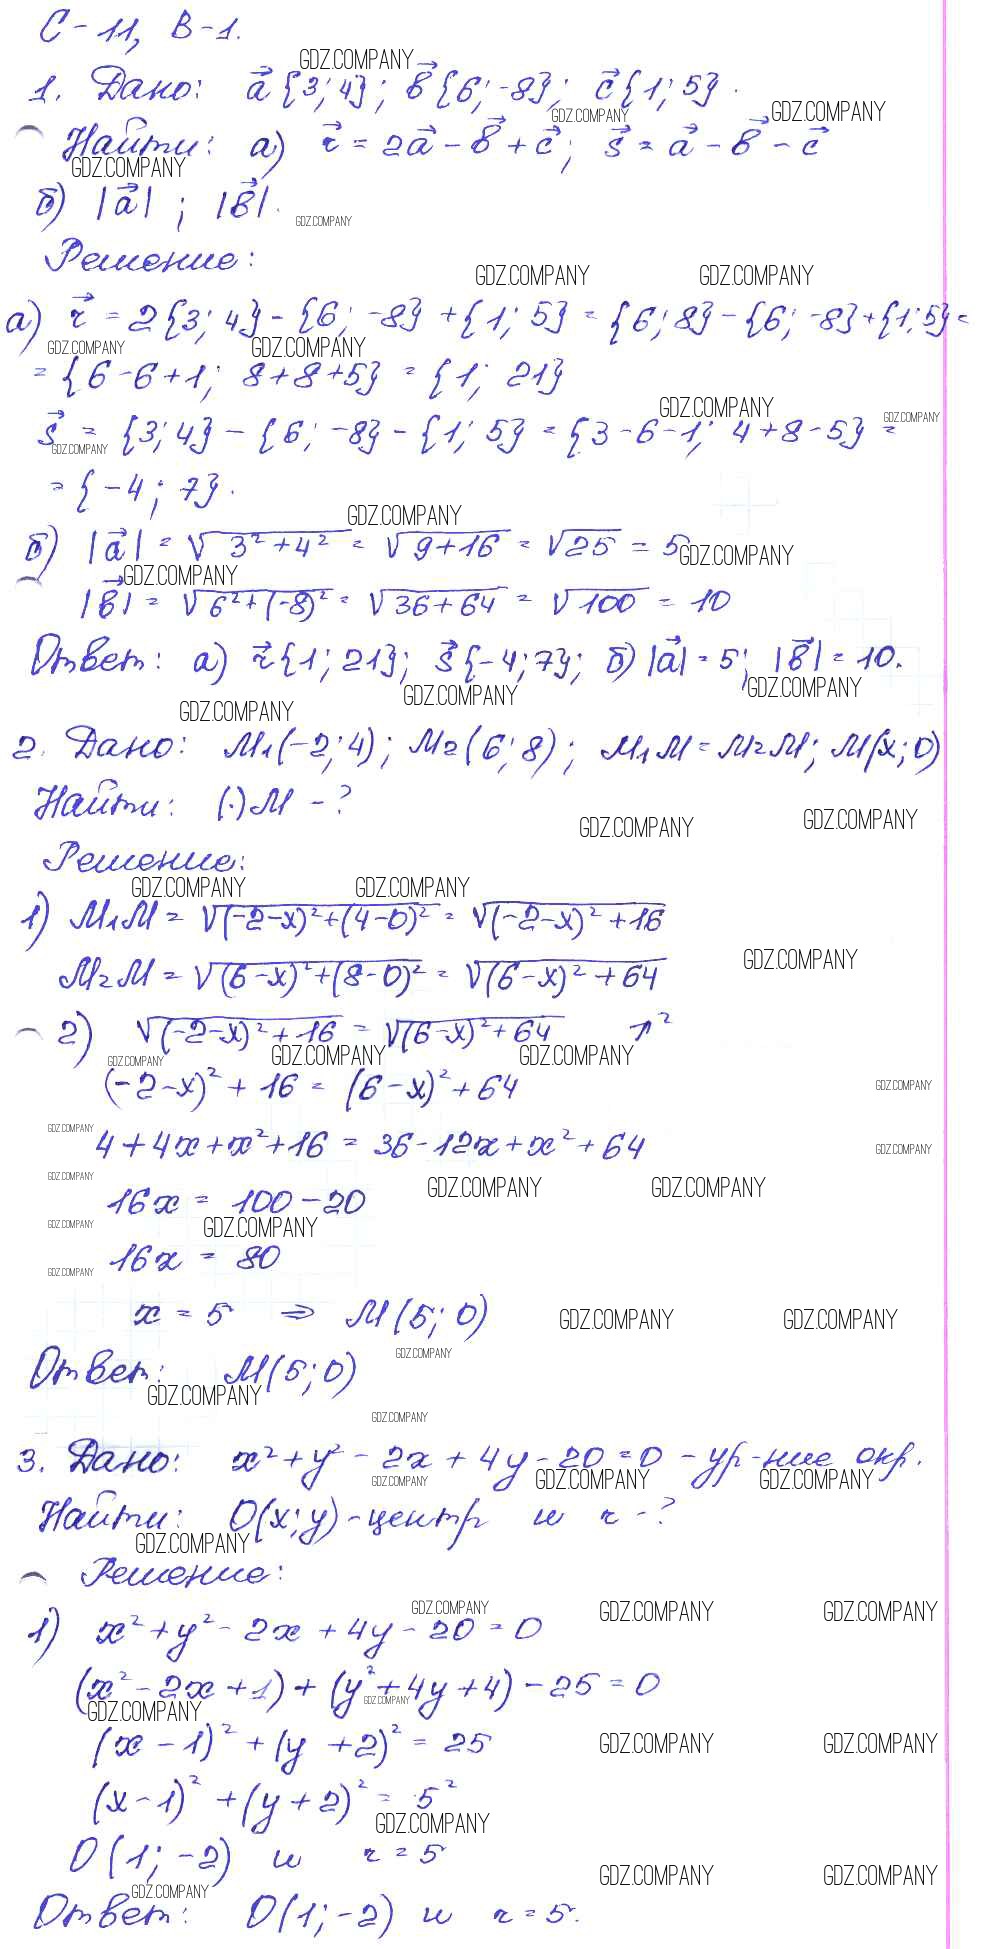 С-11, В-1.
1. Дано: a⃗{3; 4}; b⃗{6; -8}; c⃗{1; 5}.
Найти: а) r⃗ = 2a⃗ - b⃗ + c⃗; s⃗ = a⃗ - b⃗ - c⃗
б) |a⃗|; |b⃗|.
Решение:
а) r⃗ = 2{3; 4} - {6; -8} + {1; 5} = {6; 8} - {6; -8} + {1; 5} =
= {6-6+1; 8+8+5} = {1; 21}
s⃗ = {3; 4} - {6; -8} - {1; 5} = {3-6-1; 4+8-5} =
= {-4; 7}.
б) |a⃗| = √(3²+4²) = √(9+16) = √25 = 5
|b⃗| = √(6²+(-8)²) = √(36+64) = √100 = 10
Ответ: а) r⃗{1; 21}; s⃗{-4; 7}; б) |a⃗| = 5; |b⃗| = 10.
2. Дано: M₁(-2; 4); M₂(6; 8); M₁M = M₂M; M(x; 0)
Найти: (·)M - ?
Решение:
1) M₁M = √((-2-x)²+(4-0)²) = √((-2-x)²+16)
M₂M = √((6-x)²+(8-0)²) = √((6-x)²+64)
2) √((-2-x)²+16) = √((6-x)²+64) ↑²
(-2-x)² + 16 = (6-x)² + 64
4+4x+x²+16 = 36-12x+x²+64
16x = 100-20
16x = 80
x = 5 ⇒ M(5; 0)
Ответ: M(5; 0)
3. Дано: x²+y²-2x+4y-20=0 - ур-ние окр.
Найти: O(x; y)-центр и r-?
Решение:
1) x²+y²-2x+4y-20=0
(x²-2x+1)+(y²+4y+4)-25=0
(x-1)²+(y+2)²=25
(x-1)²+(y+2)²=5²
O(1; -2) и r=5
Ответ: O(1; -2) и r=5.